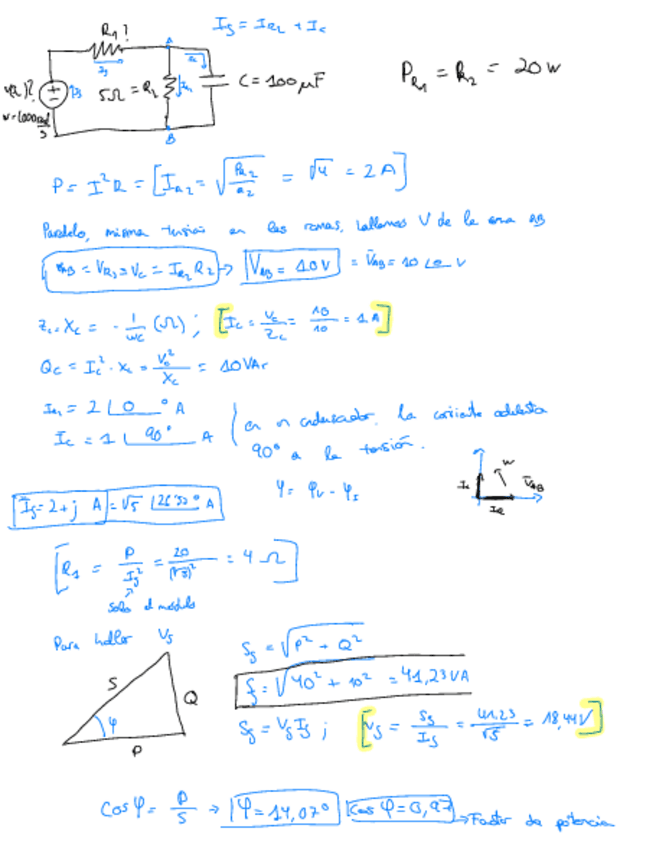 I_g = I_R2 + I_c
R_1 ?
A
I_g
5Ω = R_2
C = 100 μF
P_R1 = R_2 = 20 W
ω = 1000 rad/s
B
P = I² R = [I_R2 = √(P_R2/R_2) = √4 = 2 A]
Paralelo, misma tensión en las ramas, hallamos V de la rama AB
V_AB = V_R2 = V_C = I_R2 R_2 → V_AB = 10 V = V̄_AB = 10 ∠0 V
X_c = - 1/(ωC) (Ω) ; [I_c = V_c/Z_c = 10/10 = 1 A]
Q_c = I_c² · X_c = V_c²/X_c = 10 VAr
I_R2 = 2 ∠0° A
I_c = 1 ∠90° A
en un condensador, la corriente adelanta
90° a la tensión.
φ = φ_V - φ_I
ω
I_c
V̄_AB
I_R
Ī_g = 2 + j A = √5 ∠26'57° A
[R_1 = P/I_g² = 20/(√5)² = 4 Ω]
solo el módulo
Para hallar V_g
S_g = √(P² + Q²)
S_g = √(40² + 10²) = 41,23 VA
S
Q
φ
P
S_g = V_g I_g ; [V_g = S_g/I_g = 41,23/√5 = 18,44 V]
Cos φ = P/S → φ = 14,07° Cos φ = 0,97 → Factor de potencia